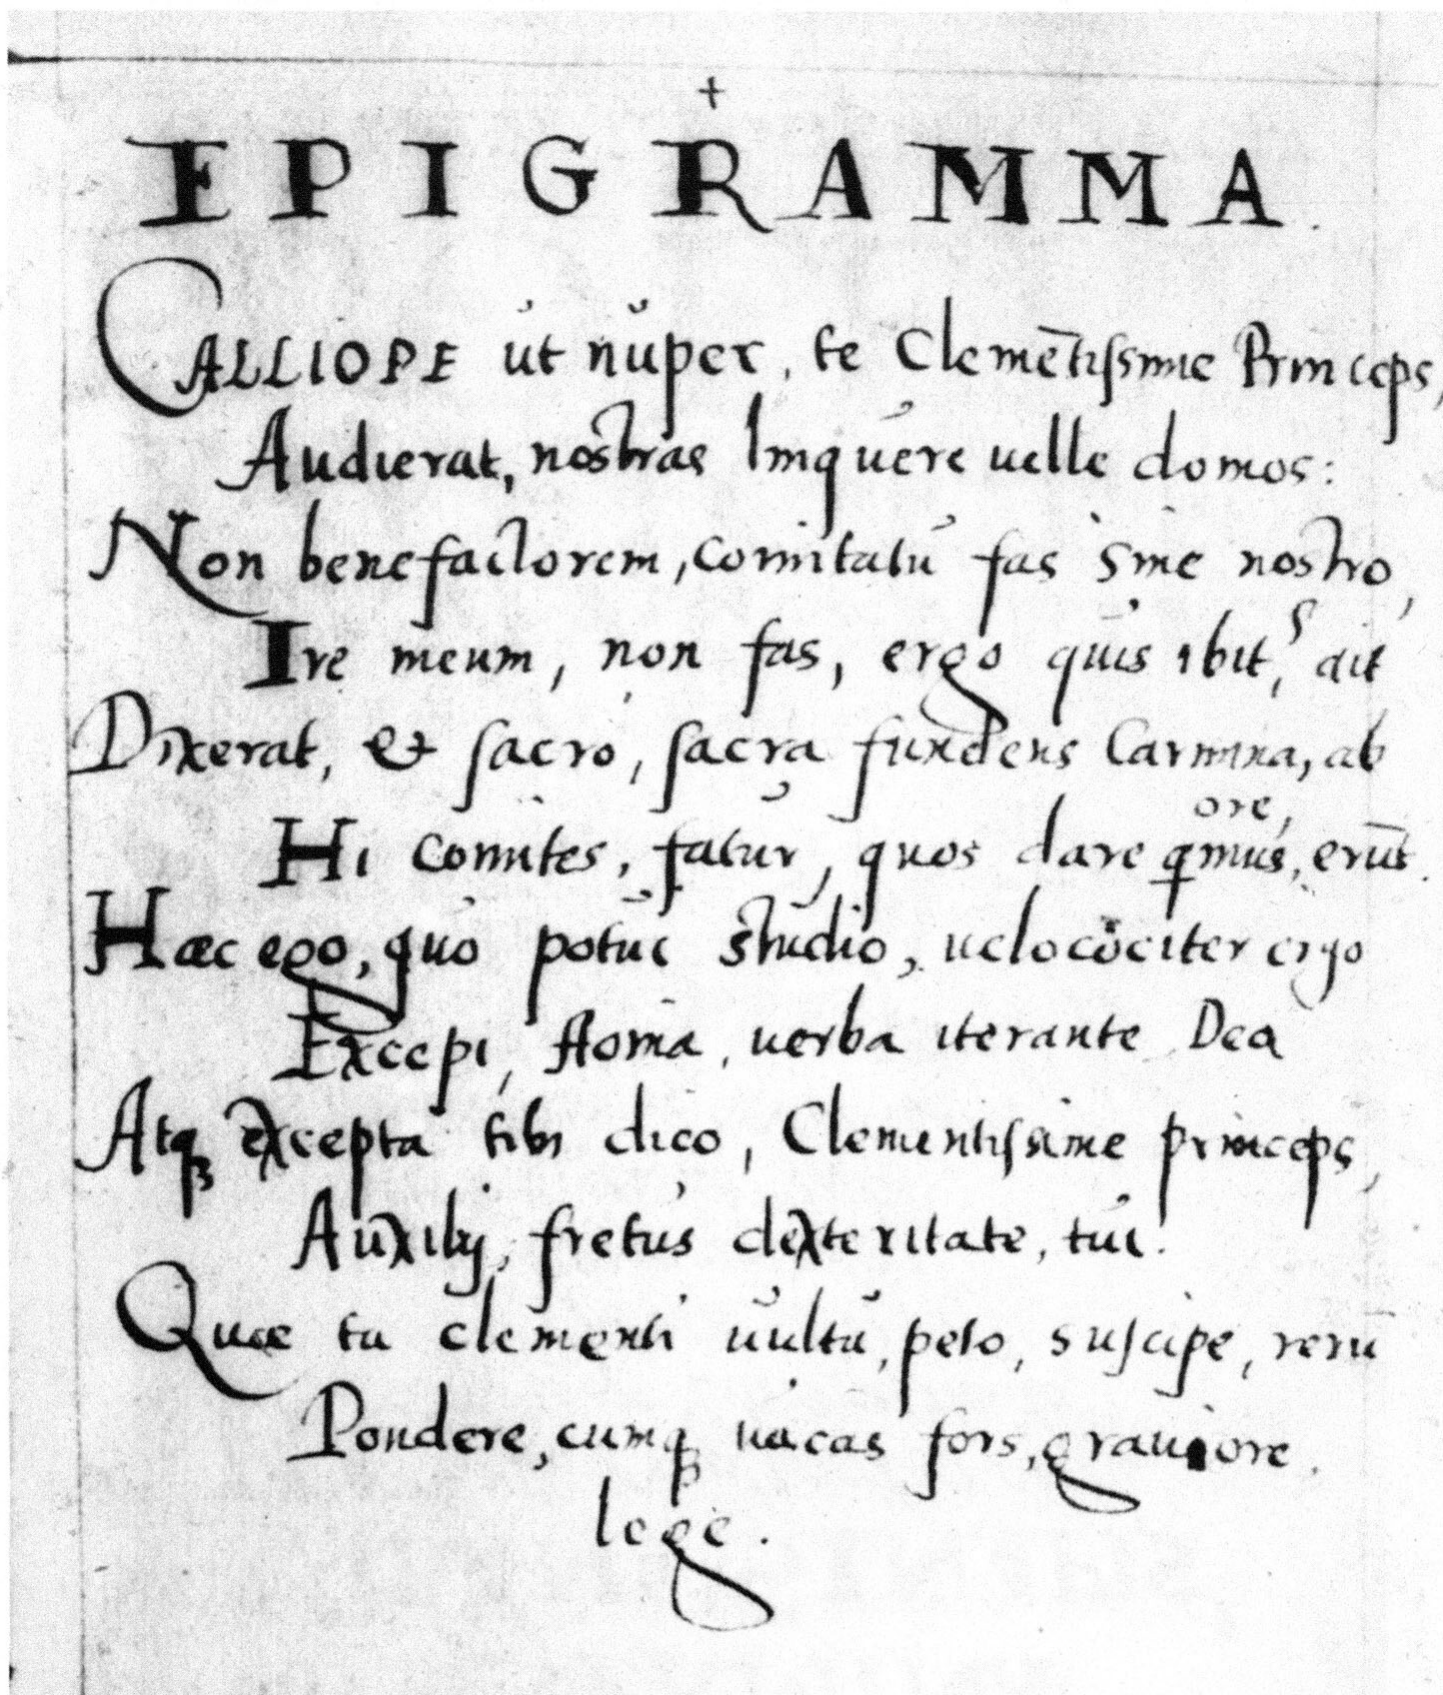 +
EPIGRAMMA.
CALLIOPE ut nuper, te Clemētissime Princeps,
Audierat, nostras linquere uelle domos:
Non benefactorem, comitatū fas sine nostro,
Ire meum, non fas, ergo quis ibit, ait
Dixerat, & sacro, sacra fundens Carmina, ab
ore,
Hi comites, fatur, quos dare qmus, erūt.
Haec ego, quo potui studio, uelocociter ergo
Excepi, uerba iterante Dea
Atq; excepta tibi dico, Clementissime princeps,
Auxilij, fretus dexteritate, tui.
Quae tu clementi uultu, peto, suscipe, rerū
Pondere, cumq; uacas fors, grauiore.
lege.